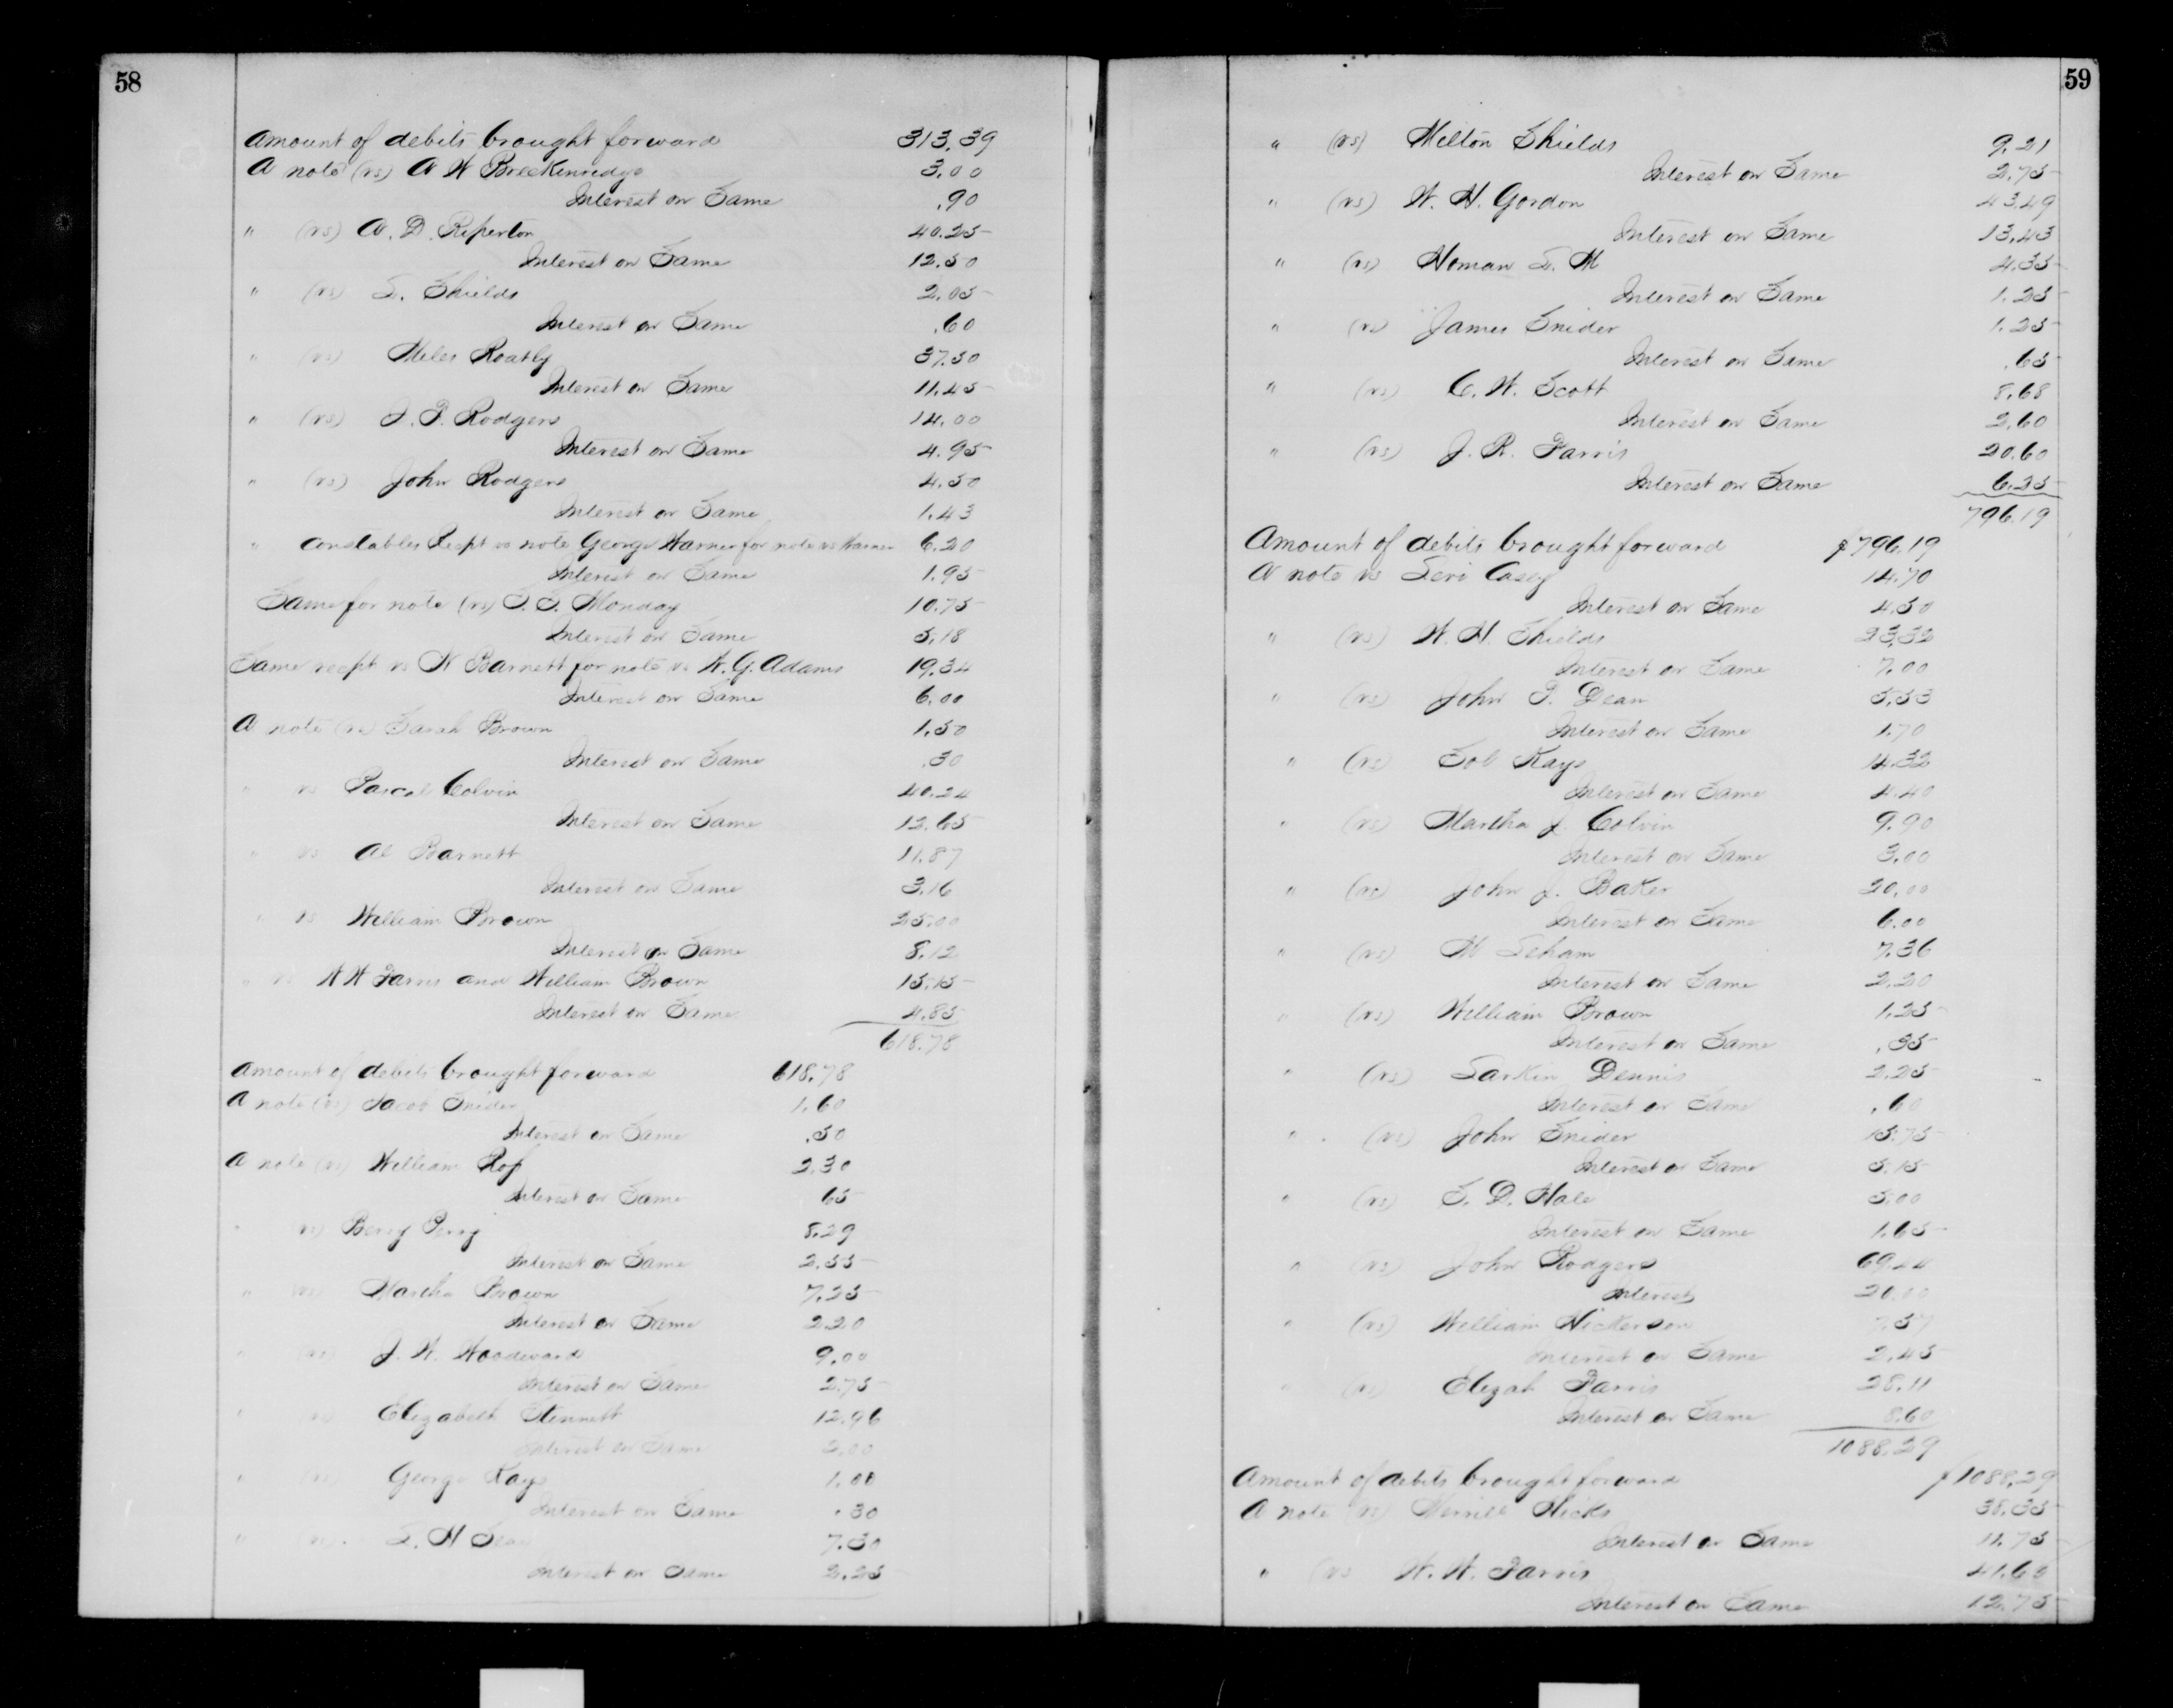 58
Amount of debits brought forward 313.39
A note (vs) A W Breckenridge 3.00
Interest on Same .90
" (vs) A. D. Riperton 40.25
Interest on Same 12.50
" (vs) S. Shields 2.05
Interest on Same .60
" (vs) Miles Roatly 37.50
Interest on Same 11.45
" (vs) J. P. Rodgers 14.00
Interest on Same 4.95
" (vs) John Rodgers 4.50
Interest on Same 1.43
" Constables Recpt vs note George Warner for note vs Warner 6.20
Interest on Same 1.95
Same for note (vs) Monday 10.75
Interest on Same 5.18
Same recpt vs N Barnett for note vs W. G. Adams 19.34
Interest on Same 6.00
A note (vs) Sarah Brown 1.50
Interest on Same .30
" vs Pascal Colvin 40.24
Interest on Same 12.65
" vs Al Barnett 11.87
Interest on Same 3.16
" vs William Brown 25.00
Interest on Same 8.12
" vs W W Farris and William Brown 15.15
Interest on Same 4.85
618.78
Amount of debits brought forward 618.78
A note (vs) Jacob Snider 1.60
Interest on Same .50
A note (vs) William 2.30
Interest on Same 65
" vs) Berry Perry 8.29
Interest on Same 2.55
" (vs) Martha Brown 7.25
Interest on Same 2.20
" (vs) J. W. Woodward 9.00
Interest on Same 2.75
" (vs) Elizabeth Stennett 12.96
Interest on Same 2.00
" (vs) George Kays 1.00
Interest on Same .30
" (vs) 7.30
Interest on Same 2.25
59
" (vs) Milton Shields 9.21
Interest on Same 2.75
" (vs) W. H. Gordon 43.49
Interest on Same 13.43
" (vs) Homan S. M 4.35
Interest on Same 1.25
" (vs) James Snider 1.25
Interest on Same .65
" (vs) C. W. Scott 8.68
Interest on Same 2.60
" (vs) J. R. Farris 20.60
Interest on Same 6.25
796.19
Amount of debits brought forward $796.19
A note vs Levi Casey 14.70
Interest on Same 4.50
" (vs) W. H. Shields 23.32
Interest on Same 7.00
" (vs) John P. Dean 5.53
Interest on Same 1.70
" (vs) Sol Kays 14.32
Interest on Same 4.40
" (vs) Martha J. Colvin 9.90
Interest on Same 3.00
" (vs) John J. Baker 20.00
Interest on Same 6.00
" (vs) M 7.36
Interest on Same 2.20
" (vs) William Brown 1.25
Interest on Same .35
" (vs) Larkin Dennis 2.25
Interest on Same .60
" (vs) John Snider 15.75
Interest on Same 5.15
" (vs) S. D. Hale 5.00
Interest on Same 1.65
" (vs) John Rodgers 69.24
Interest 20.00
" (vs) William Hickerson 7.57
Interest on Same 2.45
" (vs) Elizah Farris 28.11
Interest on Same 8.60
1088.29
Amount of debits brought forward $1088.29
A note (vs) Merrill Hicks 38.35
Interest on Same 11.75
" (vs W. W. Farris 41.60
Interest on Same 12.75